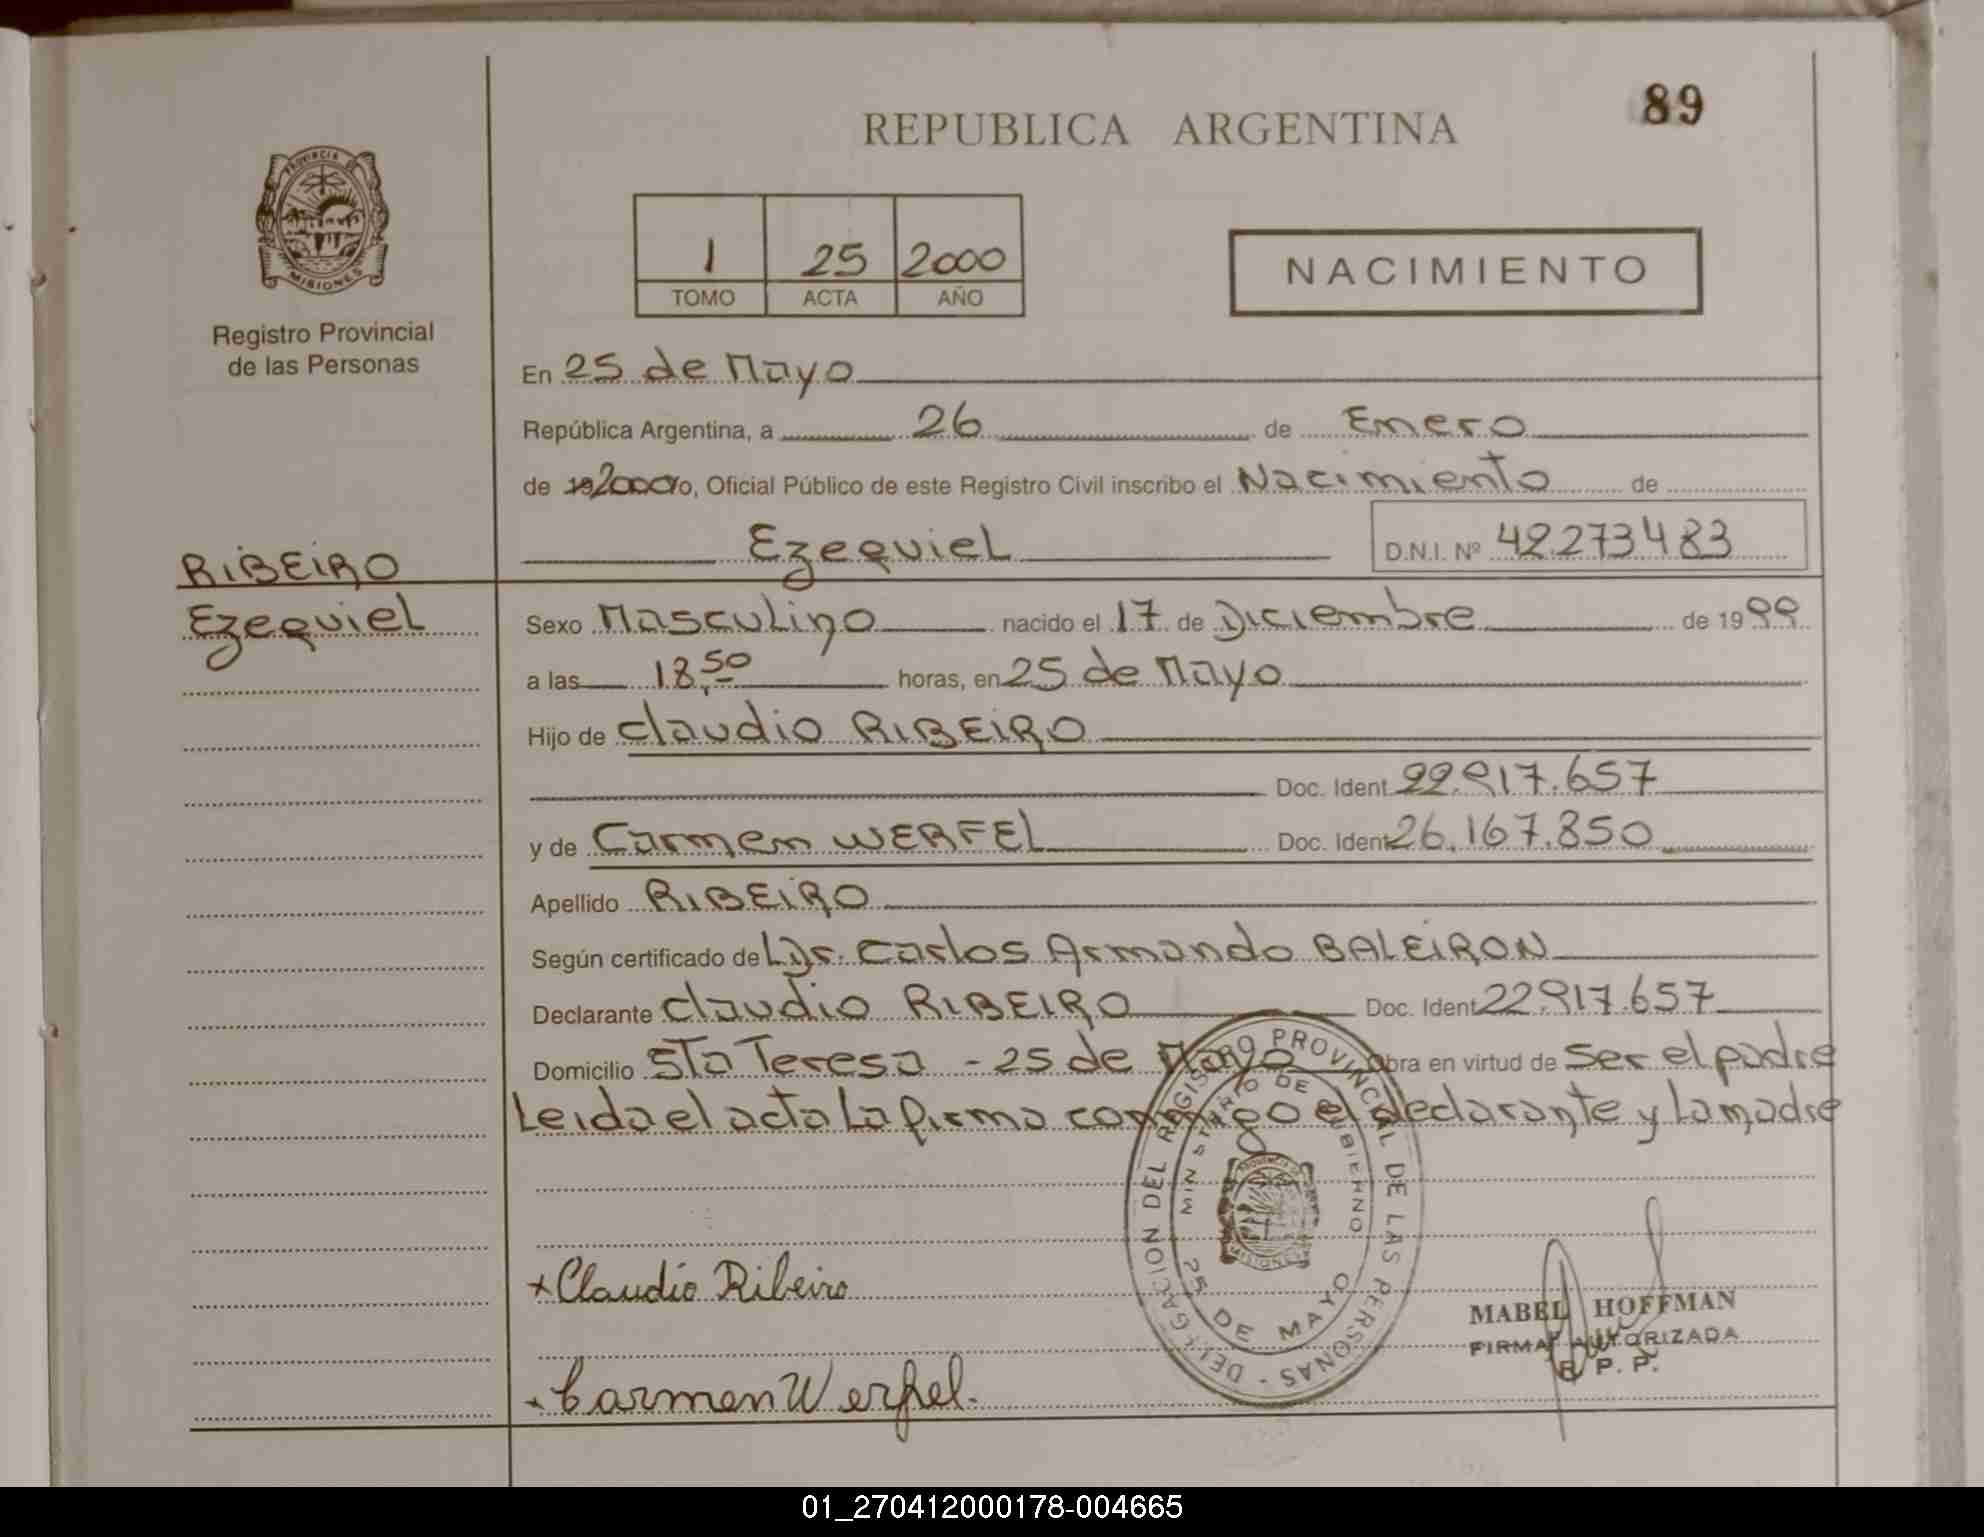 89
REPUBLICA ARGENTINA
PROVINCIA DE
MISIONES
Registro Provincial
de las Personas
1 25 2000
TOMO ACTA AÑO
NACIMIENTO
En 25 de Mayo
República Argentina, a 26 de Enero
de 19 2000 yo, Oficial Público de este Registro Civil inscribo el Nacimiento de
Ezequiel D.N.I. Nº 42.273.483
RIBEIRO
Ezequiel
Sexo Masculino nacido el 17 de Diciembre de 1999
a las 18,50 horas, en 25 de Mayo
Hijo de Claudio RIBEIRO
Doc. Ident. 22.917.657
y de Carmen WERFEL Doc. Ident. 26.167.850
Apellido RIBEIRO
Según certificado de Dr. Carlos Armando BALEIRON
Declarante Claudio RIBEIRO Doc. Ident. 22.917.657
Domicilio Sta Teresa - 25 de Mayo Obra en virtud de ser el padre
Leida el acta La firma conmigo el declarante y La madre
DELEGACION DEL REGISTRO PROVINCIAL DE LAS PERSONAS -
MINISTERIO DE GOBIERNO
25 DE MAYO
PROVINCIA DE
MISIONES
+ Claudio Ribeiro
MABEL HOFFMAN
FIRMA AUTORIZADA
R. P. P.
Carmen Werfel.
01_270412000178-004665